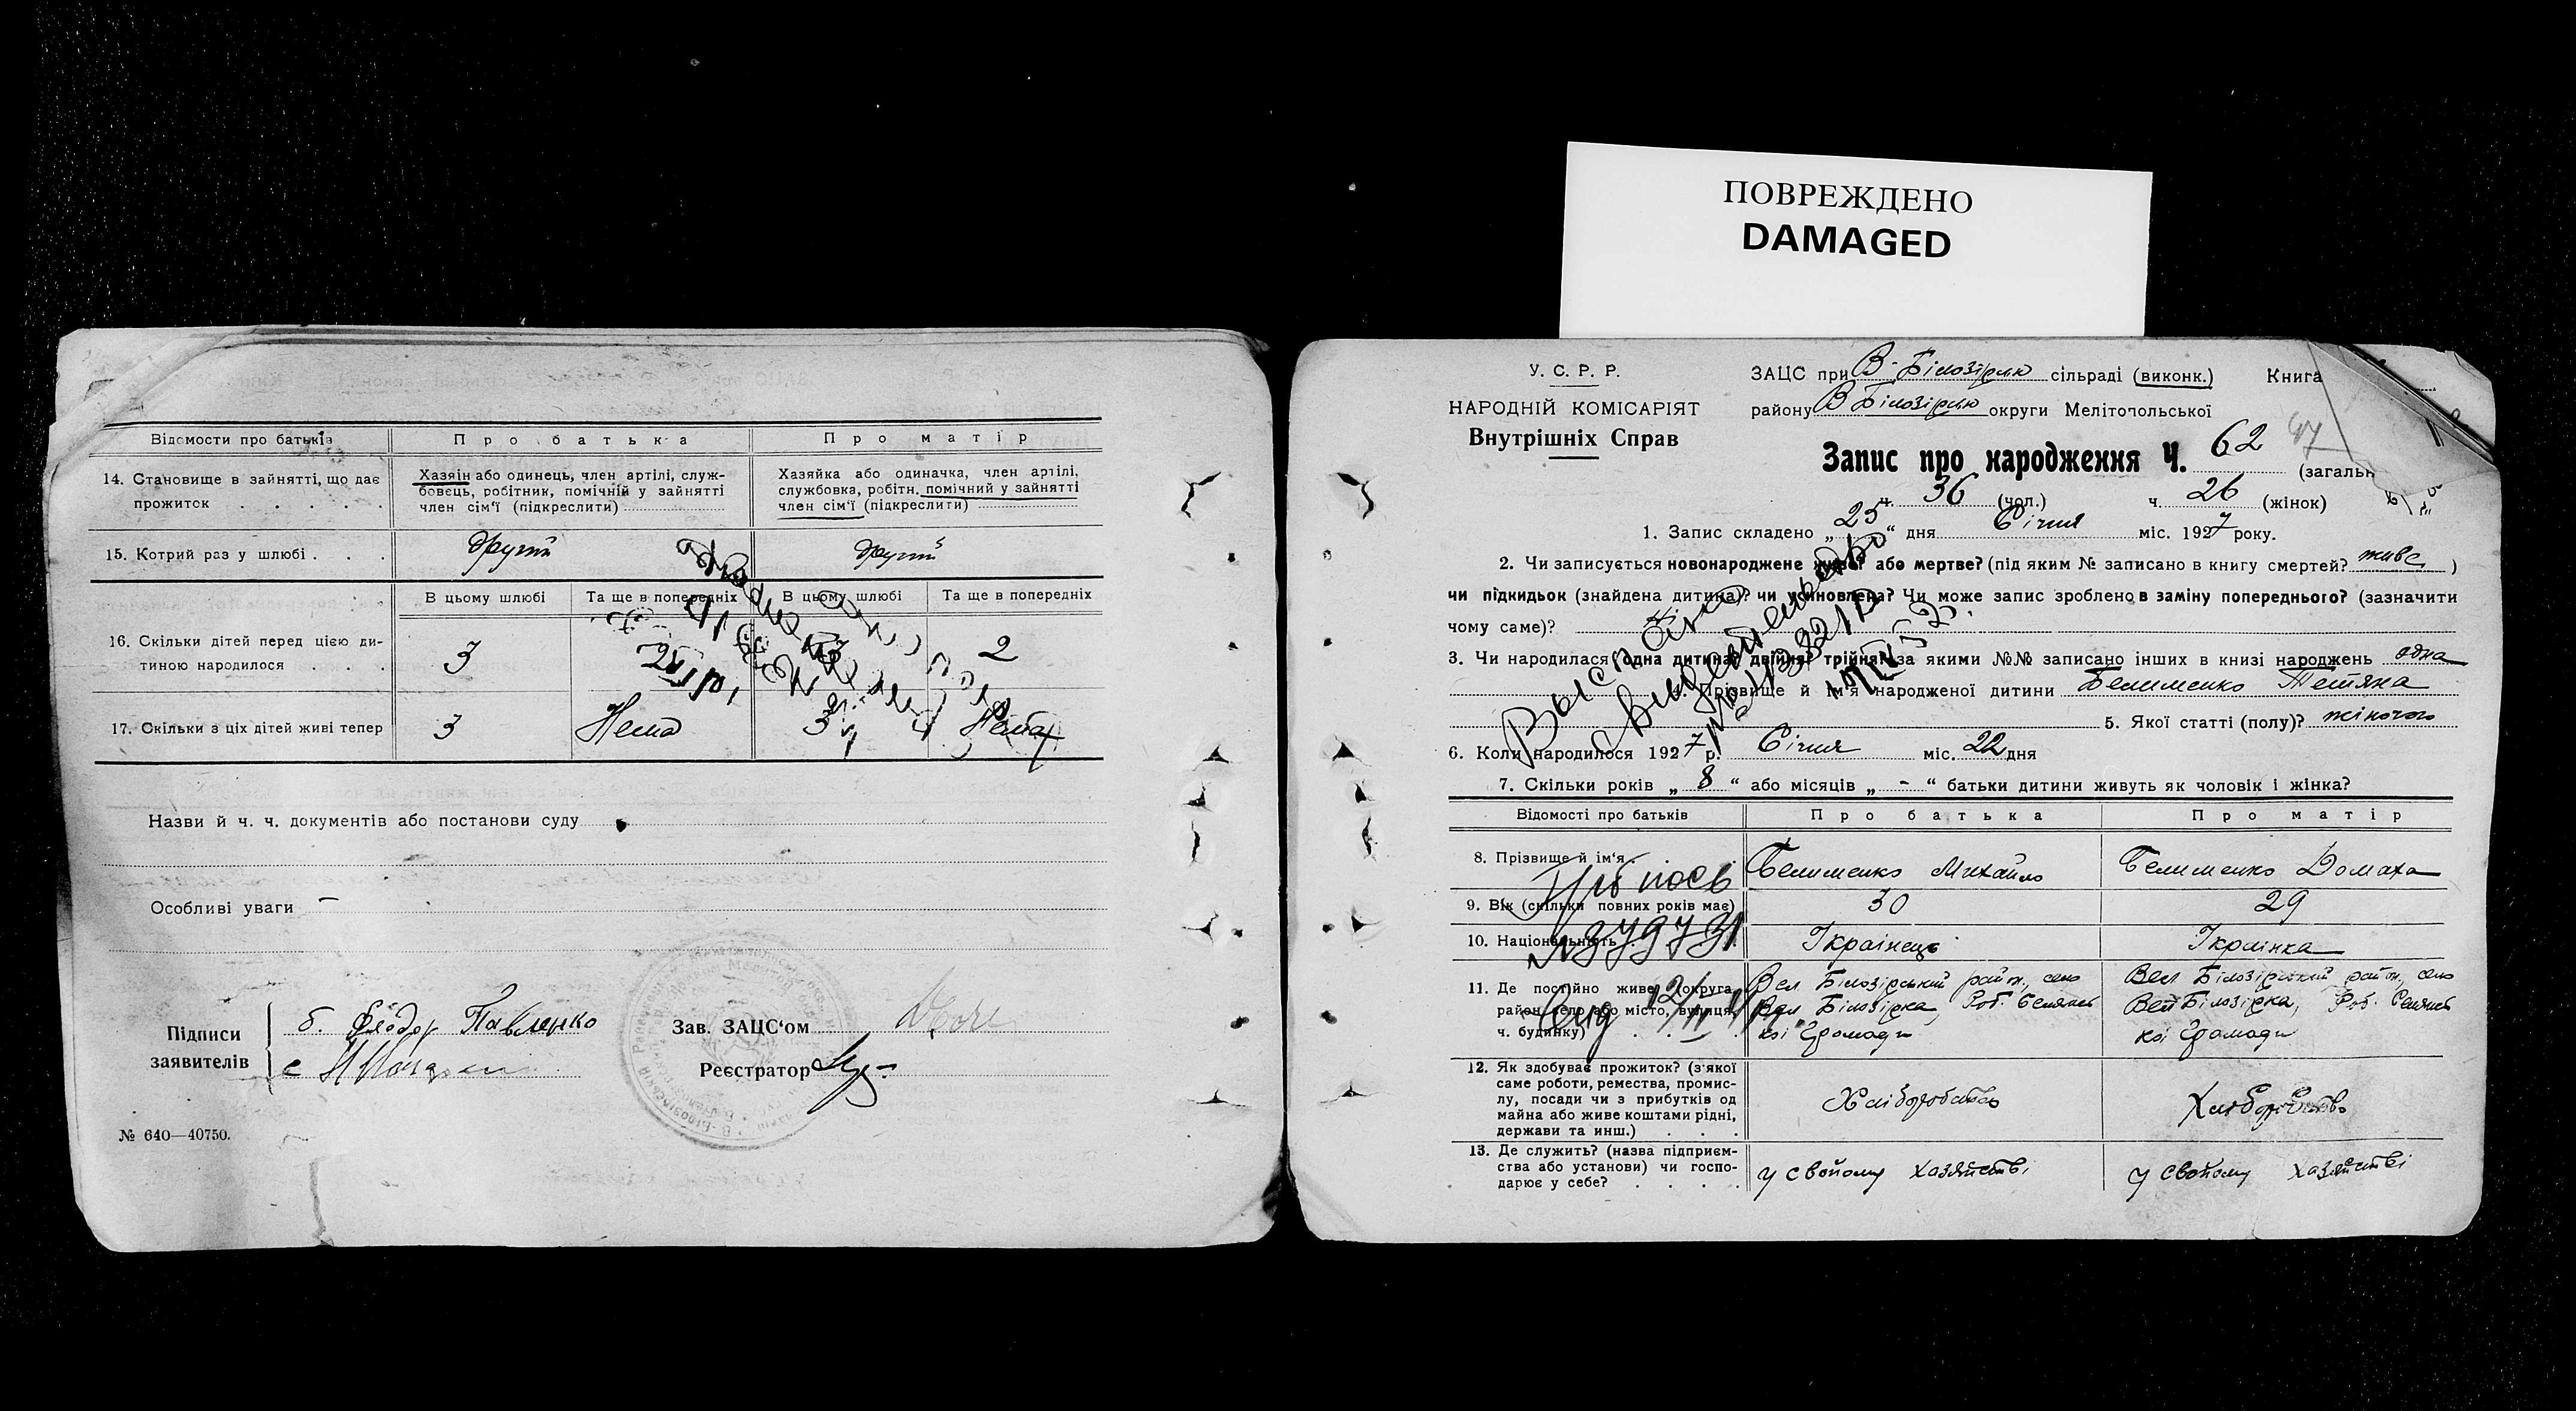 ПОВРЕЖДЕНО
DAMAGED
Відомости про батьків
Про батька
Про матір
14. Становище в зайнятті, що дає
прожиток . . . . .
Хазяін або одинець, член артілі, служ-
бовець, робітник, помічній у зайнятті
член сім'ї (підкреслити)
Хазяйка або одиначка, член артілі,
службовка, робітн. помічний у зайнятті
член сім'ї (підкреслити)
15. Котрий раз у шлюбі . . .
другий
другий
В цьому шлюбі
Та ще в попередніх
В цьому шлюбі
Та ще в попередніх
16. Скільки дітей перед цією ди-
тиною народилося . . .
3
3
2
17. Скільки з ціх дітей живі тепер
3
Нема
3
Нема
Назви й ч. ч. документів або постанови суду
Особливі уваги —
Підписи
заявителів
б. Фёдор Павленко
Зав. ЗАЦС'ом
Реєстратор
№ 640—40750.
У. С. Р. Р.
НАРОДНІЙ КОМІСАРІЯТ
Внутрішніх Справ
ЗАЦС при В-Білозірск сільраді (виконк.)
Книга
району В Білозірск округи Мелітопольської
Запис про народження Ч. 62
47
(загальн
ч. 36 (чол.)
ч. 26 (жінок)
1. Запис складено „ 25 “ дня Січня міс. 1927 року.
2. Чи записується новонароджене живе? або мертве? (під яким № записано в книгу смертей? живе )
чи підкидьок (знайдена дитина)? чи усиновлена? Чи може запис зроблено в заміну попереднього? (зазначити
чому саме)?
3. Чи народилася одна дитина? двійня? трійня? за якими №№ записано інших в книзі народжень одна
4. Прізвище й ім'я народженої дитини Белименко Тетяна
5. Якої статті (полу)? жіночого
6. Коли народилося 1927 р. Січня міс. 22 дня
7. Скільки років „ 8 “ або місяців „ - “ батьки дитини живуть як чоловік і жінка?
Відомості про батьків
Про батька
Про матір
8. Прізвище й ім'я .
Белименко Михайло
Белименко Домаха
9. Вік (скільки повних років має)
30
29
10. Національність
Українець
Українка
11. Де постійно живе (округа,
район, село або місто, вулиця,
ч. будинку)
Вел Білозірський район, село
Вел Білозірка, Роб. Селянсь
кої Громади
Вел Білозірський район, село
Вел Білозірка, Роб. Селянсь
кої Громади
12. Як здобуває прожиток? (з якої
саме роботи, ремества, промис-
лу, посади чи з прибутків од
майна або живе коштами рідні,
держави та инш.) . . .
Хліборобство
Хліборобство
13. Де служить? (назва підприєм-
ства або установи) чи госпо-
дарює у себе? . . . .
у свойому хазяйстві
у свойому хазяйстві